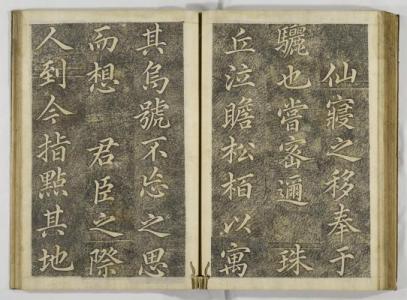 仙寢之移奉于
驪也嘗密邇 珠
丘泣瞻松栢以寓
其烏號不忘之思
而想 君臣之際
人到今指點其地